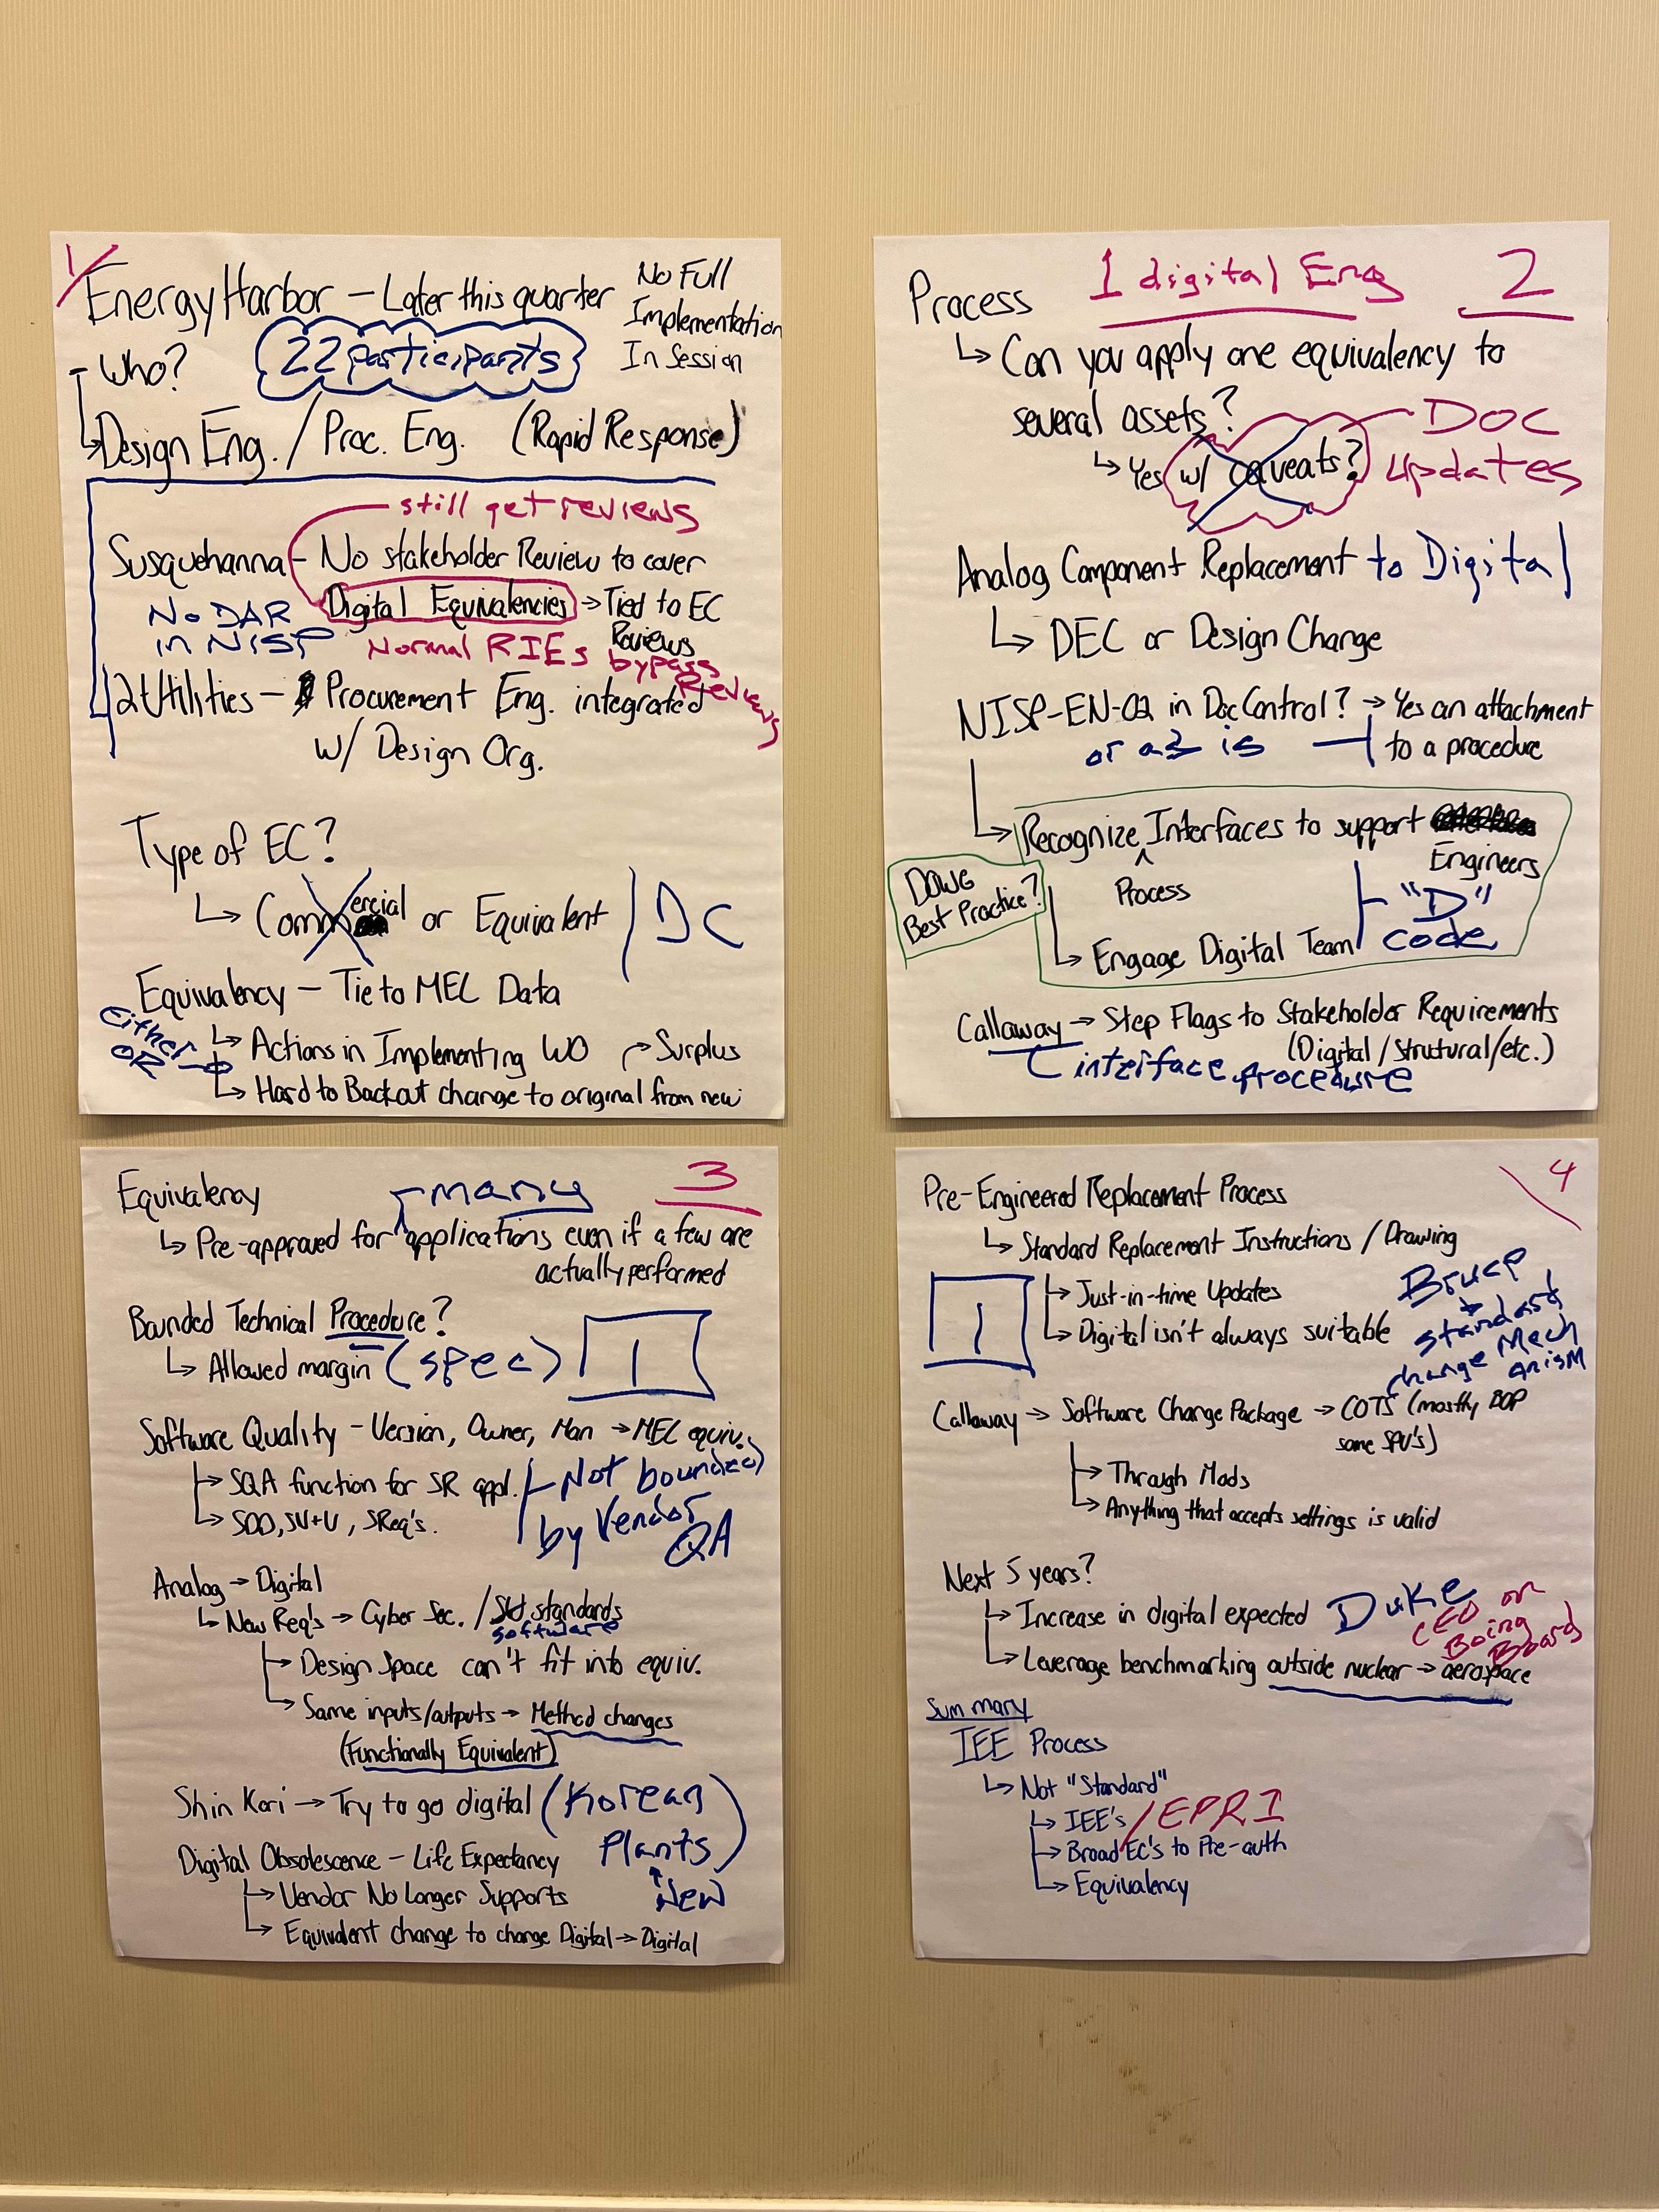 1/
Energy Harbor - Later this quarter
No Full
Implementation
In Session
- Who?
22 participants
Design Eng. / Proc. Eng. (Rapid Response)
still get reviews
Susquehanna - No stakeholder Review to cover
Digital Equivalencies → Tied to EC
Reviews
No DAR
in NISP
Normal RIEs bypass
Reviews
2 Utilities - Procurement Eng. integrated
w/ Design Org.
Type of EC?
↳ Commercial or Equivalent / DC
Equivalency - Tie to MEL Data
Either
OR →
↳ Actions in Implementing WO
Surplus
↳ Hard to Backout change to original from new
1 digital Eng
2
Process
↳ Can you apply one equivalency to
several assets?
↳ Yes w/ caveats?
DOC
updates
Analog Component Replacement to Digital
↳ DEC or Design Change
NISP-EN-02 in Doc Control? → Yes an attachment
to a procedure
or as is
↳ Recognize Interfaces to support
Engineers
^
Process
DOWG
Best Practice?
↳ Engage Digital Team
"D"
code
Callaway → Step Flags to Stakeholder Requirements
(Digital / Strutural/etc.)
interface procedure
3
Equivalency
many
↳ Pre-approved for applications even if a few are
actually performed
Bounded Technical Procedure?
↳ Allowed margin (spec)
1
Software Quality - Version, Owner, Man → MEL equiv.
↳ SQA function for SR appl.
↳ SDD, SV+V, SReq's.
Not bounded
by Vendor
QA
Analog → Digital
↳ New Req's → Cyber Sec. / SW standards
software
↳ Design Space can't fit into equiv.
↳ Same inputs/outputs → Method changes
(Functionally Equivalent)
Shin Kori → Try to go digital (Korean
Plants)
↑
New
Digital Obsolescence - Life Expectancy
↳ Vendor No Longer Supports
↳ Equivalent change to change Digital → Digital
4
Pre-Engineered Replacement Process
↳ Standard Replacement Instructions / Drawing
1
↳ Just-in-time Updates
↳ Digital isn't always suitable
Bruce
→
standard
change Mech
anism
Callaway → Software Change Package → COTS (mostly BOP
some SPV's)
↳ Through Mods
↳ Anything that accepts settings is valid
Next 5 years?
↳ Increase in digital expected
Duke
CEO on
Boing
Board
↳ Leverage benchmarking outside nuclear → aerospace
Summary
IEE Process
↳ Not "Standard"
↳ IEE's / EPRI
↳ Broad EC's to Pre-auth
↳ Equivalency